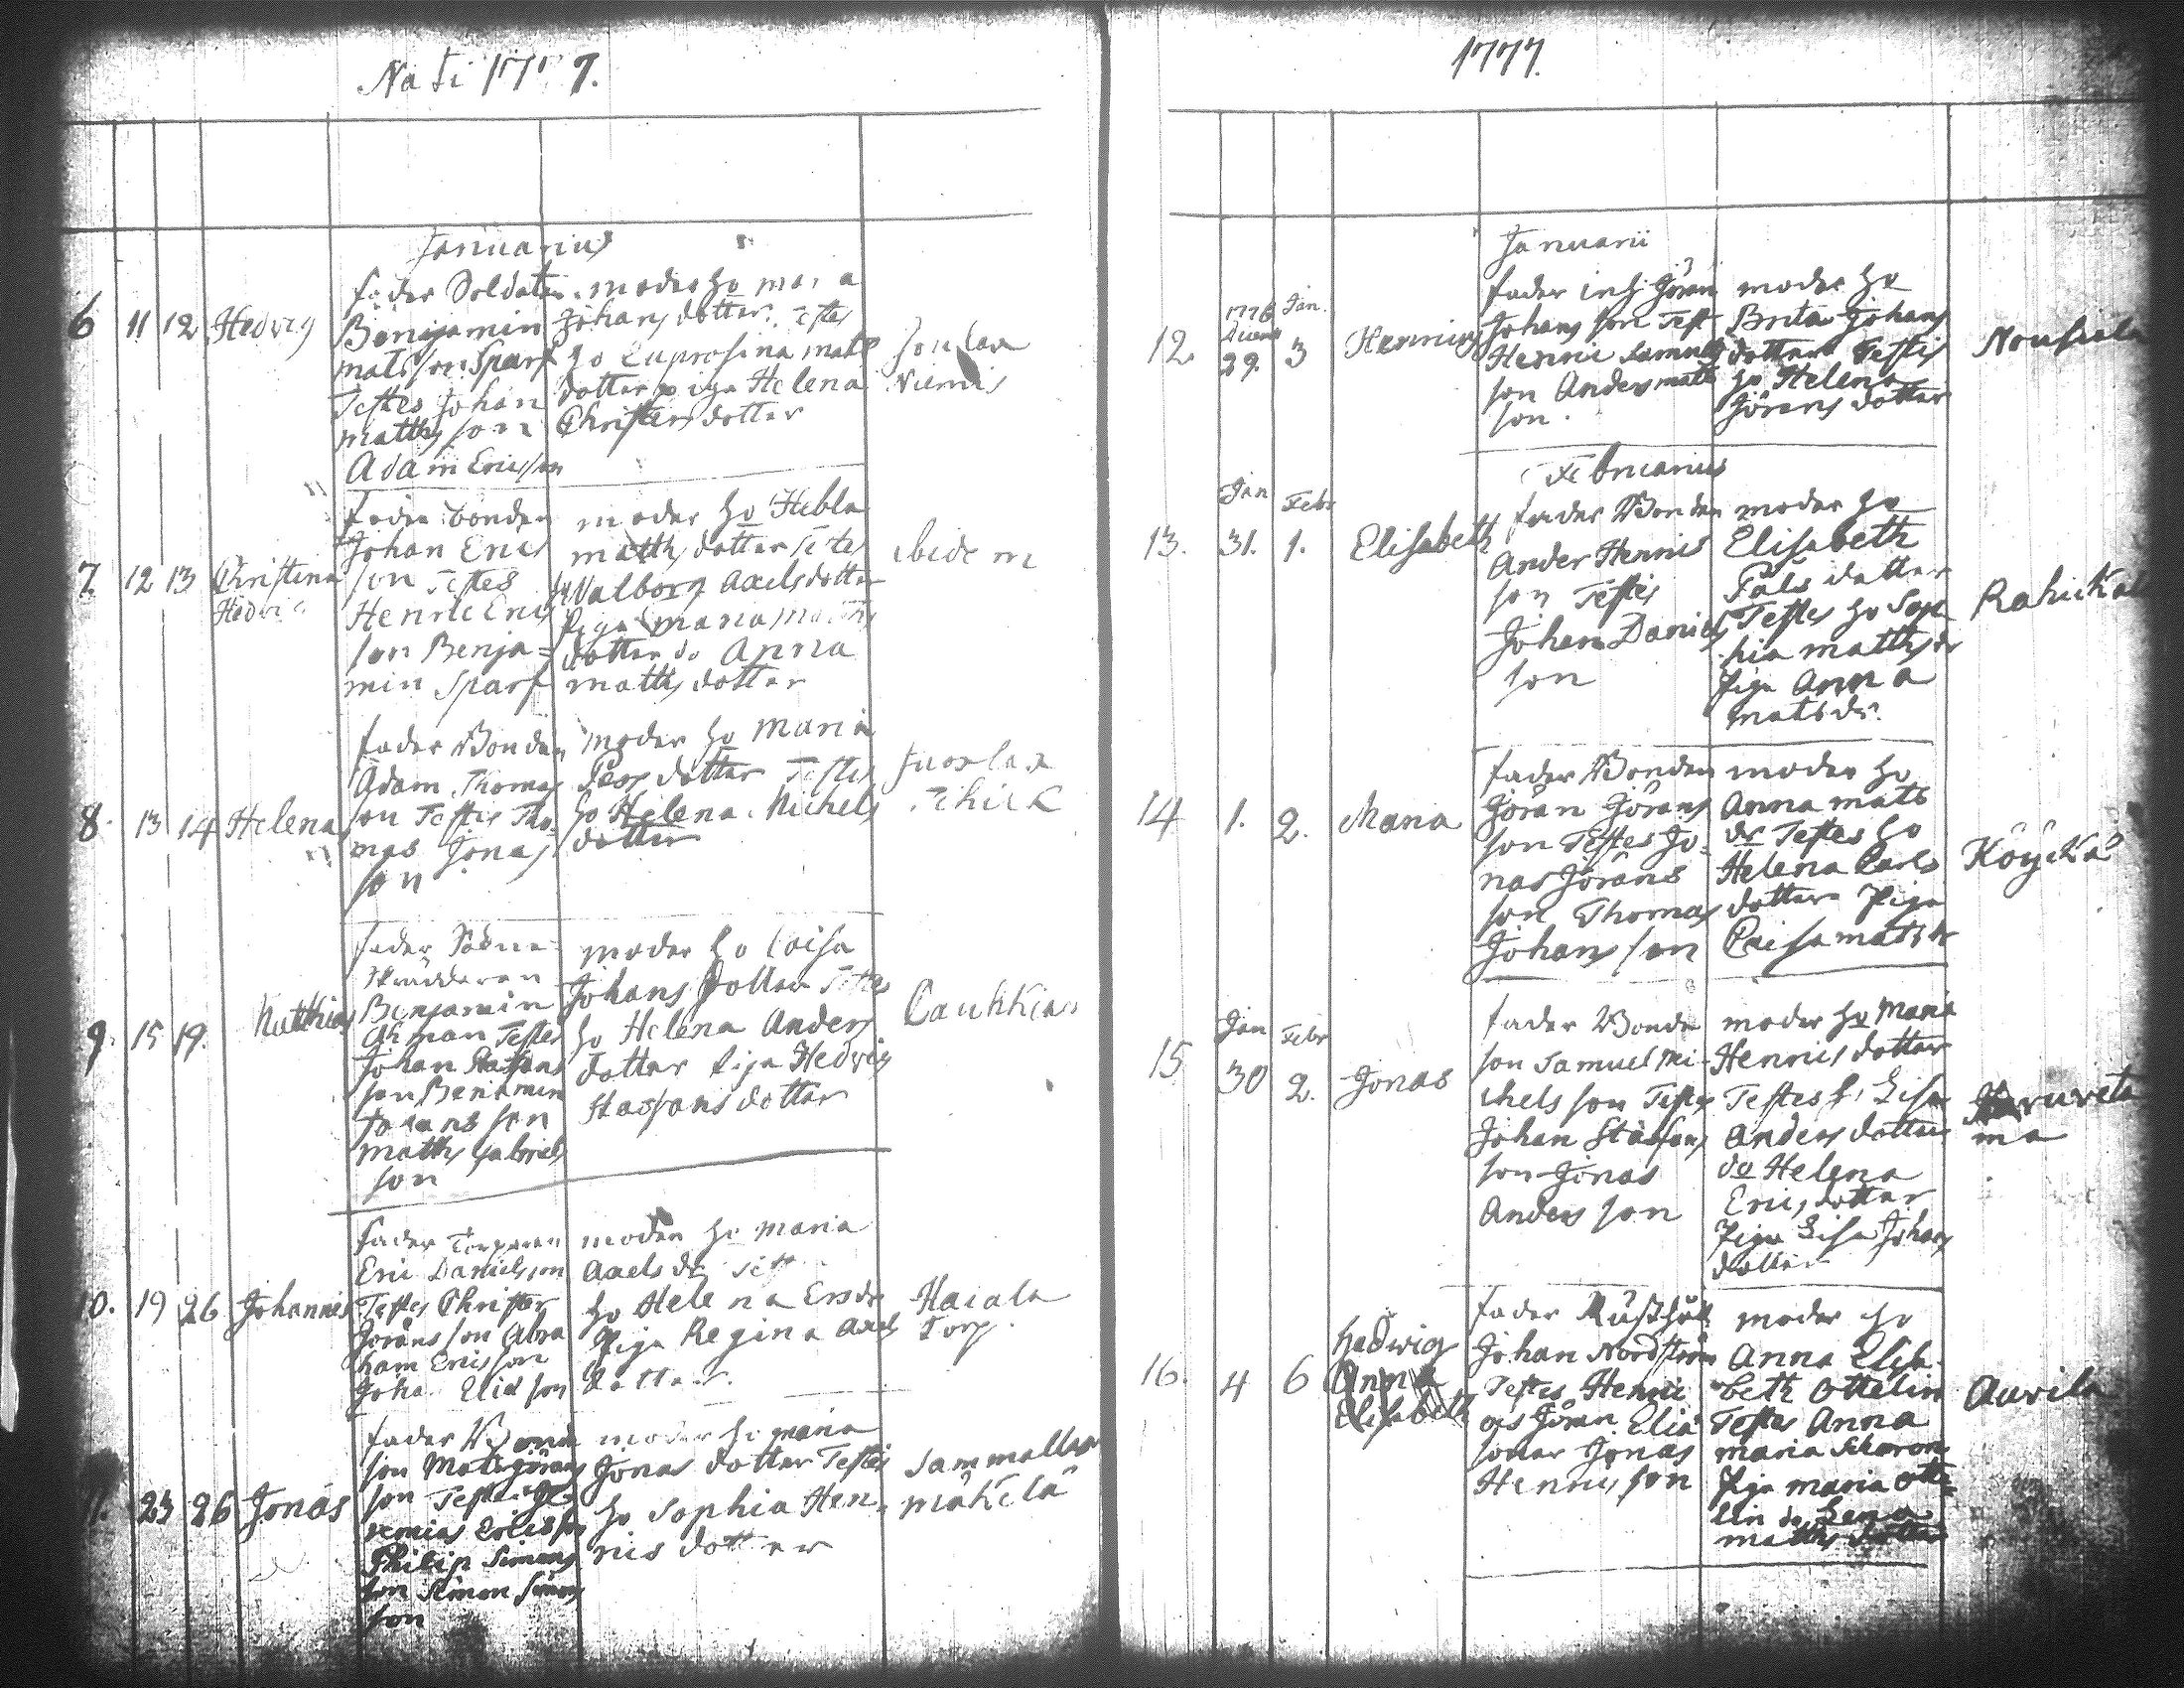 Nati 1777.
Januarius
6 11 12 Hedvig
fader Soldaten
Benjamin
mats son Sparf
Testes Johan
matths son
Adam Ericsson
moder ho maria
Johans dotter. Testes
ho Euprosina mats
dotter piga Helena
Christers dotter
Niemis
7. 12 13 Christina
Hedvig
fader bonden
Johan Erics
son Testes
Henric Erics
son Benja=
min Sparf
moder ho Hebla
matths dotter Testes
Walborg Axelsdotter
Piga maria matths
dotter do Anna
matths dotter
ibidem
8. 13 14 Helena
fader Bonden
Adam Thomas
son Testes Tho=
mas Jonas
son
moder ho Maria
dotter Testes
ho Helena Michels
dotter
9. 15 19. Matthias
fader Sokne
skräddaren
Benjamin
Testes
Johan Staffans
son Benjamin
Johans son
matths Gabriels
son
moder ho Caisa
Johans dotter Testes
ho Helena Anders
dotter Piga Hedvig
Staffans dotter
10. 19 26 Johannes
fader Torparen
Eric Danielsson
Testes Christer
Görans son Abra
ham Ericsson
Johan Eliæ son
moder ho Maria
Axels dr Test
ho Helena Ersdr
Piga Regina Axels
dotter.
Haiala
Torp.
11. 23 26 Jonas
fader Bonde
son Mats Görans
son Testes Je
remias Ericsson
Philip Simons
son Simon Simons
son
moder ho maria
Jonas dotter Testes
ho Sophia Hen=
rics dotter
Sammallas
mäkelä
1777.
Januarii
12. 1776 Jan.
29. 3 Henricus
fader inh Göran
Johans son Test
Henric Samuels
son Anders matts
son.
moder ho
Brita Johans
dotter Testes
ho Helena
Görans dotter
Nousiala
Februarius
Jan Febr
13. 31. 1. Elisabeth
fader Bonden
Ander Henrics
son Testes
Johan Daniels
son
moder ho
Elisabeth
Påls dotter
Testes ho Sop
hia matths dr
Piga Anna
mats dr.
14 1. 2. Maria
fader Bonden
Göran Görans
son Testes Jo=
nas Görans
son Thomas
Johans son
moder ho
Anna mats
dr Testes ho
Helena Carls
dotter Piga
Caisa mats dr
Köyckä
Jan Febr
15 30 2. Jonas
fader Bonde
son Samuel Mi=
chels son Testes
Johan Staffans
son Jonas
Anders son
moder ho Maria
Henrics dotter
Testes h: Lisa
Anders dotter
do Helena
Erics dotter
Piga Lisa Johans
dotter
16. 4 6 Hedwig
Anna
Elisabeth
fader Rusthåll
Johan Nordström
Testes Henric
os Göran Elia
söner Jonas
Henrics son
moder ho
Anna Elisa=
beth Ottelin
Testes Anna
maria
Piga maria Otte=
lin do Lena
matths dotter
Auvila